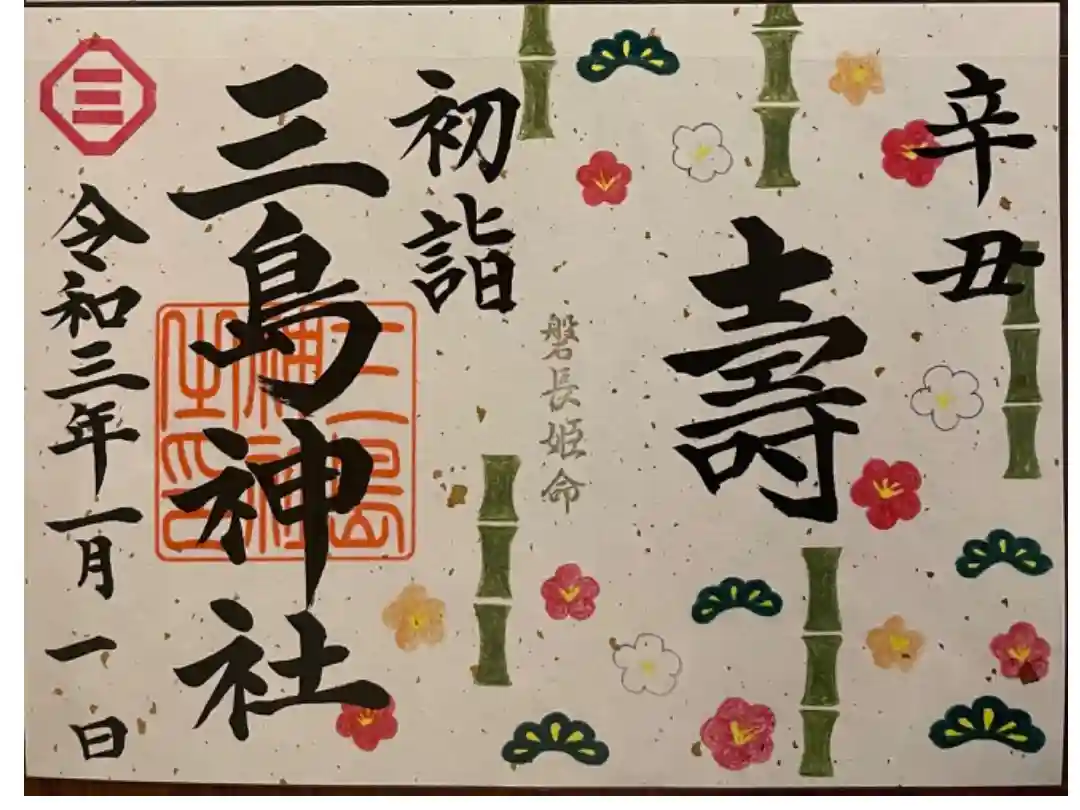 辛丑
壽
磐長姫命
初詣
三島神社
三島神社之印
令和三年一月一日